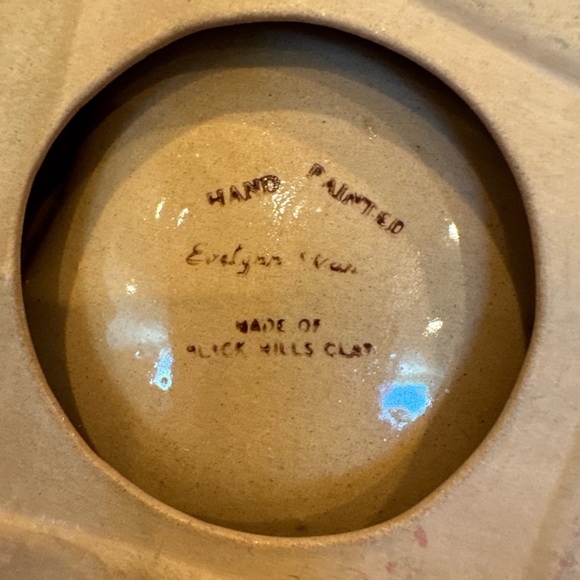 HAND PAINTED
Evelynn
MADE OF
BLACK HILLS CLAY